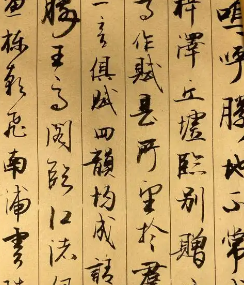 嗚呼勝地不常
梓澤丘墟臨別贈
高作賦是所望於羣
一言俱賦四韻均成請
滕王高閣臨江渚
畫棟朝飛南浦雲